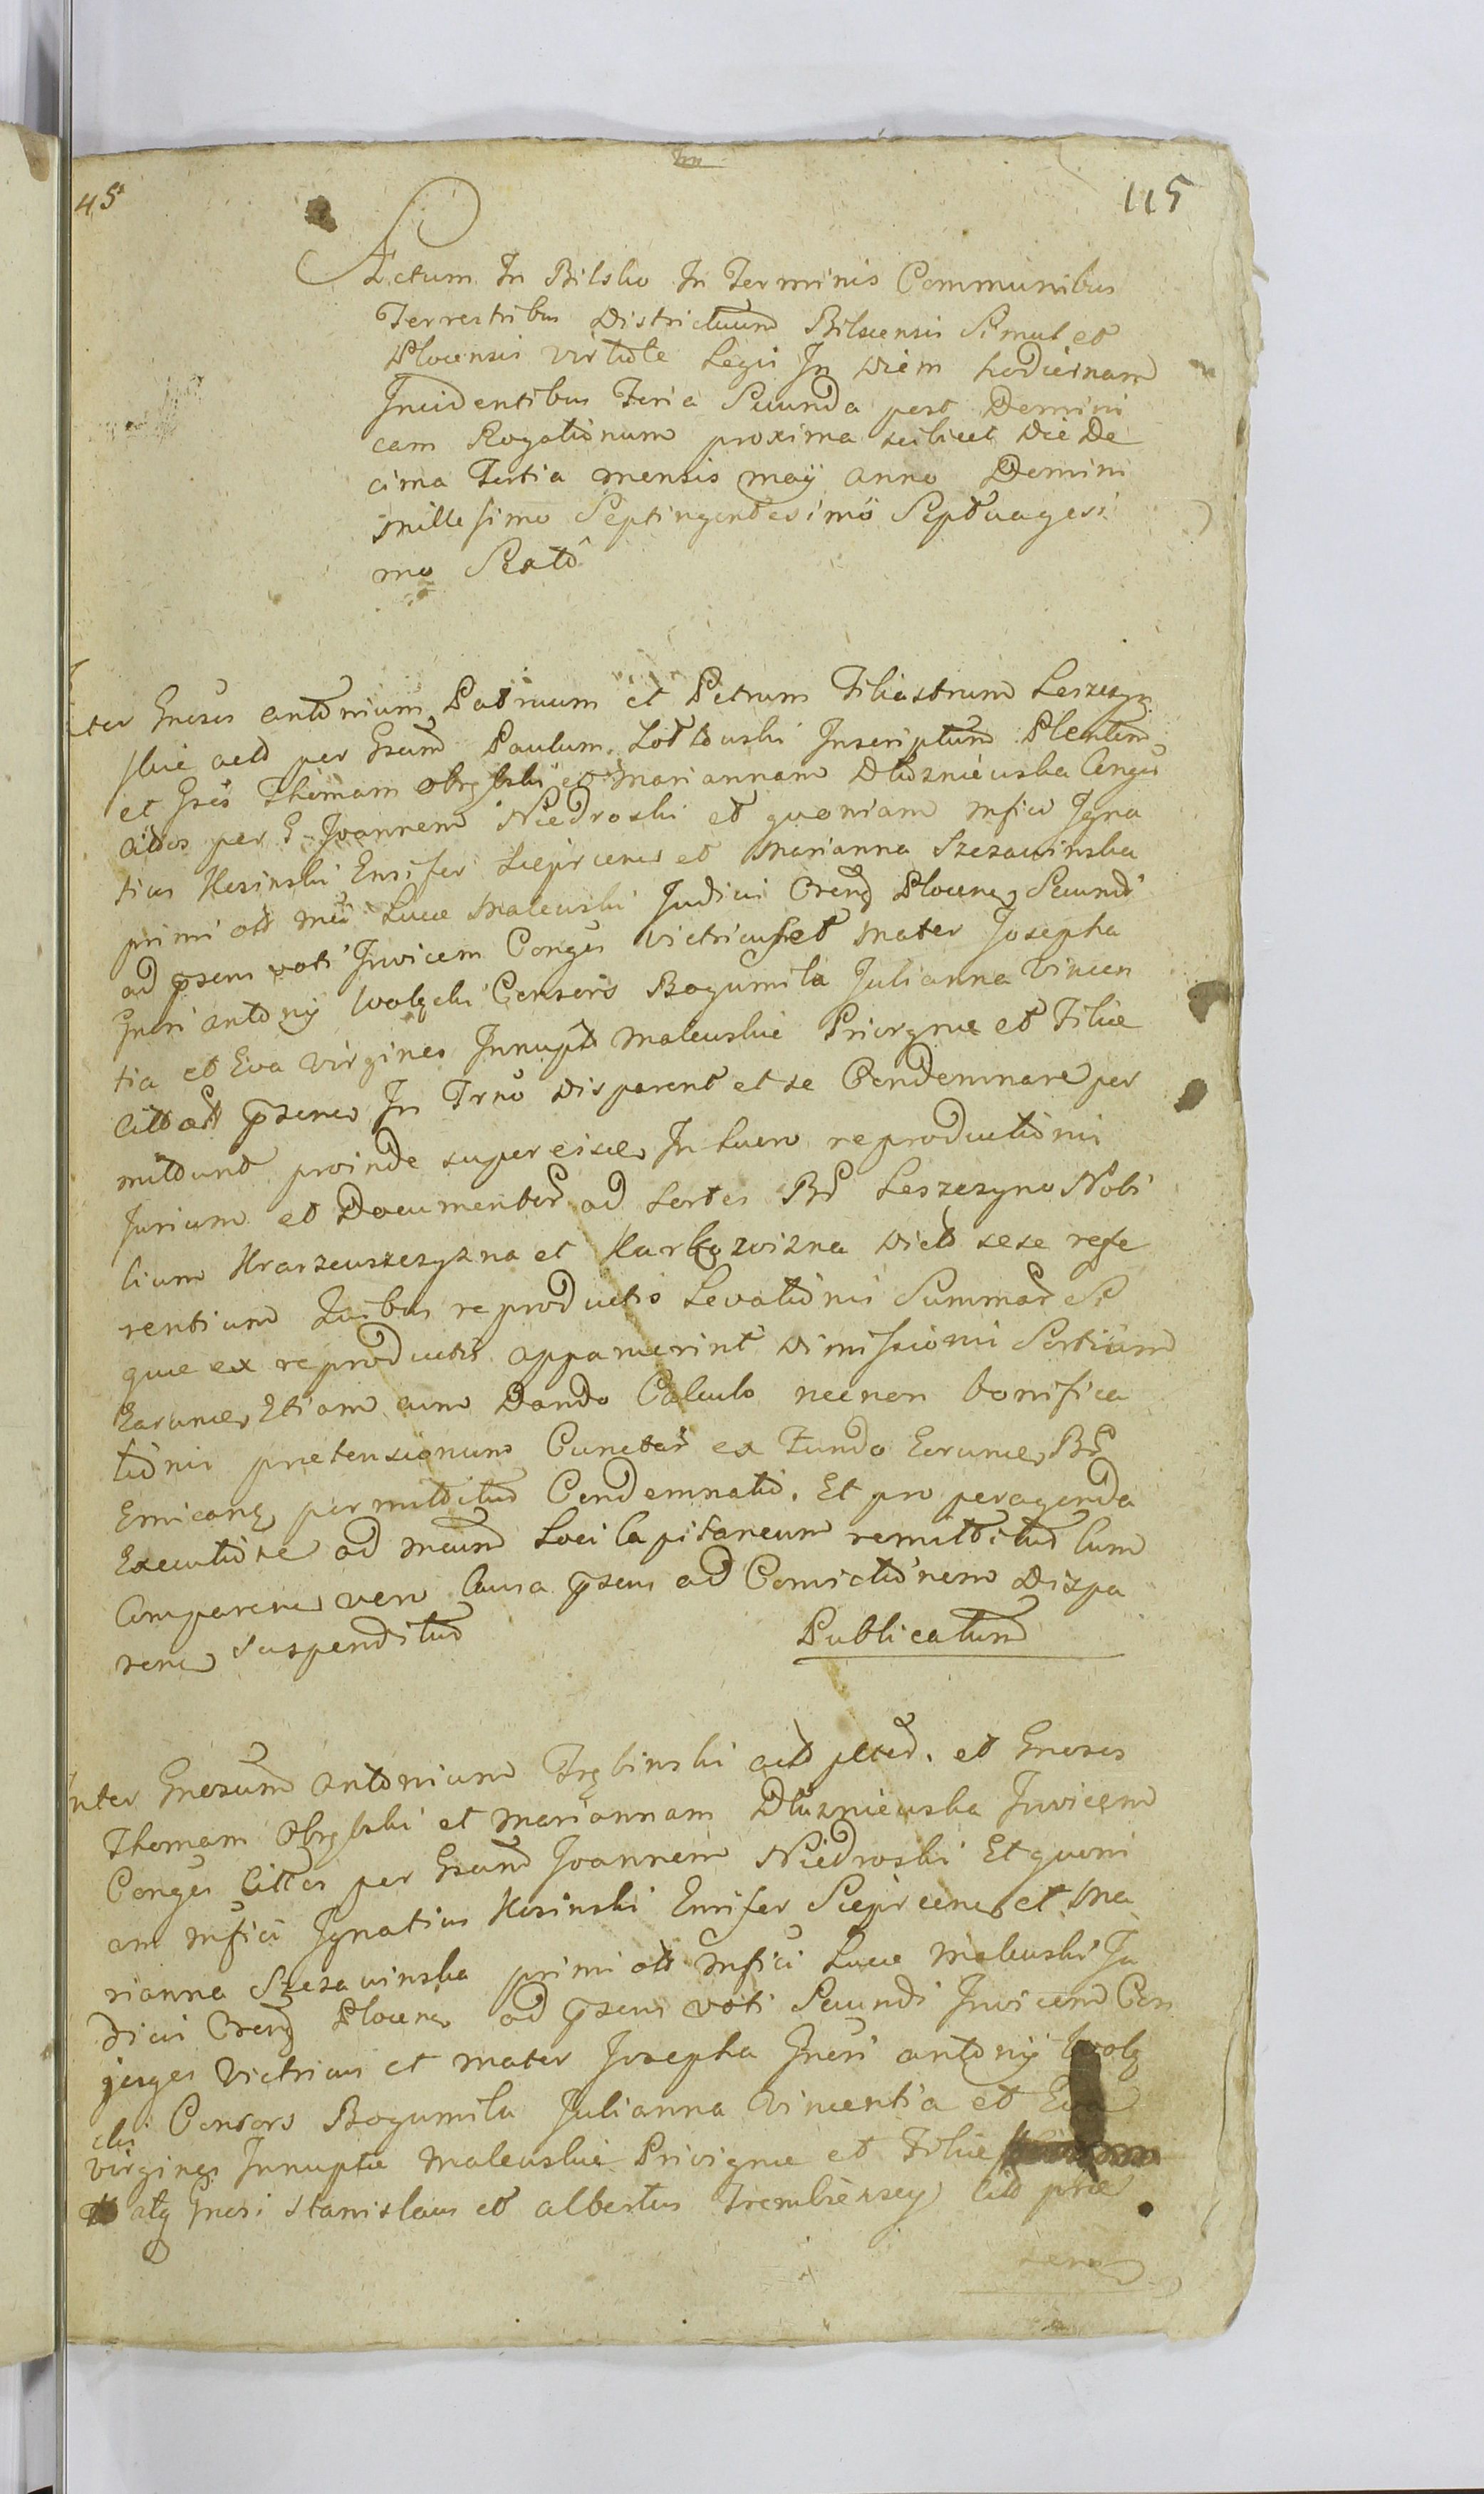 45
115
Actum In Bilsko In Terminis Communibus
Terrestribus Districtuum Bilscensis Simul et
Plocensis virtute Legis In Diem hodiernam
Incidentibus Feria Secunda post Domini
cam Rogationum proxima scilicet Die De
cima Tertia mensis maÿ anno Domini
millesimo Septingentesimo Septuagesi
mo Sexto
ter Gnosos antonium Patruum et Petrum Filiastrum Leszczyn
skie act per Gsum Paulum Inscriptum
et Gsos Thomam et Mariannam Dłużniewska Conges
per G. Joannem Niedroski et quoniam mfici Igna
tius Kosinski Ensifer Sieprcens et Marianna Szczawinska
primi Luce Malewski Judici Plocens Secundi
ad psens voti Invicem Conges victricus et Mater Josepha
Gnosi antonÿ Consors Bogumila Julianna Vincen
tia et Eva virgines Innupt malewskie Privignæ et Filiæ
psenes In Trno Disparent et se Condemnare per
mittunt proinde super eisdem In Luero reproductionis
Jurium et Documentor ad Sortes Br Leszczyno Nobi
lium Krarzewszczyzna et dict sese refe
rentium quibus reproductis Levationis Summar Si
quæ ex reproductis apparuerint Dimissionis Sortium
Earumce Etiam cum Dando Calculo necnon bonifica
tionis prætensionum Cunctar ex Fundo Earumce Br
permittitur Condemnatio. Et pro peragenda
Executione ad meum Loci Capitaneum remittitur Cum
Comparens vero Causa psens ad Convictionem Dispa
rens suspenditur
Publicatum
nter Gnosum antonium Trębinski act et Gnosos
Thomam et Mariannam Dłużniewska Invicem
Conges Cittos per Gsum Joannem Niedroski Et quoni
am mfici Ignatius Kosinski Ensifer Sieprcens et Ma
rianna Szczawinska primi mfici Luce Malewski Ju
dici Plocens ad psens voti Secundi Invicem Con
juges Victricus et mater Josepha Gnosi antonÿ Wolę
cki Consors Bogumila Julianna Vincentia et Eva
virgines Innuptæ Malewskie Privignæ et Filiæ
atq Gnosi Stanislaus et albertus citt præ
sens